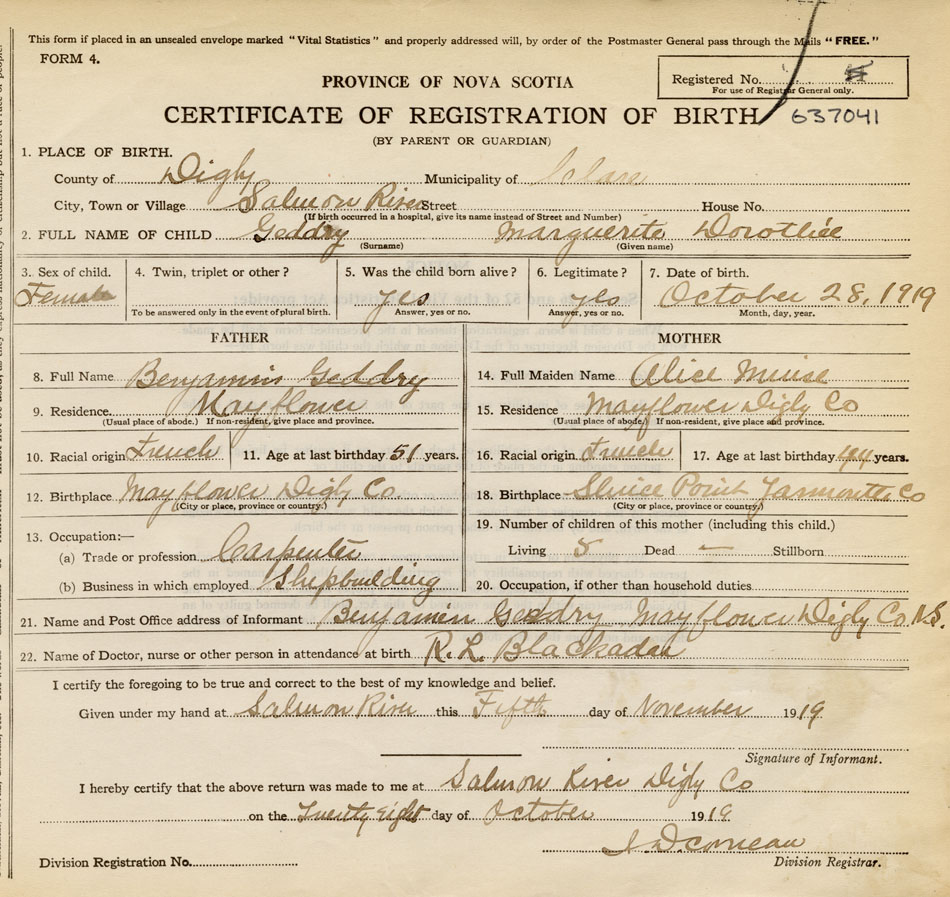 This form if placed in an unsealed envelope marked "Vital Statistics" and properly addressed will, by order of the Postmaster General pass through the Mails "FREE."
FORM 4.
PROVINCE OF NOVA SCOTIA
Registered No.
For use of Registrar General only.
CERTIFICATE OF REGISTRATION OF BIRTH 637041
(BY PARENT OR GUARDIAN)
1. PLACE OF BIRTH.
County of Digby Municipality of Clare
City, Town or Village Salmon River Street House No.
(If birth occurred in a hospital, give its name instead of Street and Number)
2. FULL NAME OF CHILD Geddry Marguerite Dorothée
(Surname) (Given name)
3. Sex of child. 4. Twin, triplet or other? 5. Was the child born alive? 6. Legitimate? 7. Date of birth.
Female yes yes October 28, 1919
To be answered only in the event of plural birth. Answer, yes or no. Answer, yes or no. Month, day, year.
FATHER MOTHER
8. Full Name Benjamin Geddry 14. Full Maiden Name Alice Muise
9. Residence Mayflower 15. Residence Mayflower Digby Co
(Usual place of abode.) If non-resident, give place and province. (Usual place of abode.) If non-resident, give place and province.
10. Racial origin French 11. Age at last birthday 51 years. 16. Racial origin French 17. Age at last birthday 44 years.
12. Birthplace Mayflower Digby Co. 18. Birthplace Sluice Point Yarmouth Co
(City or place, province or country.) (City or place, province or country.)
13. Occupation:— 19. Number of children of this mother (including this child.)
(a) Trade or profession Carpenter Living 5 Dead — Stillborn
(b) Business in which employed Shipbuilding 20. Occupation, if other than household duties
21. Name and Post Office address of Informant Benjamin Geddry Mayflower Digby Co. N.S.
22. Name of Doctor, nurse or other person in attendance at birth R. L. Blackadar
I certify the foregoing to be true and correct to the best of my knowledge and belief.
Given under my hand at Salmon River this Fifth day of November 1919
Signature of Informant.
I hereby certify that the above return was made to me at Salmon River Digby Co
on the Twenty Eight day of October 1919
Comeau
Division Registration No. Division Registrar.